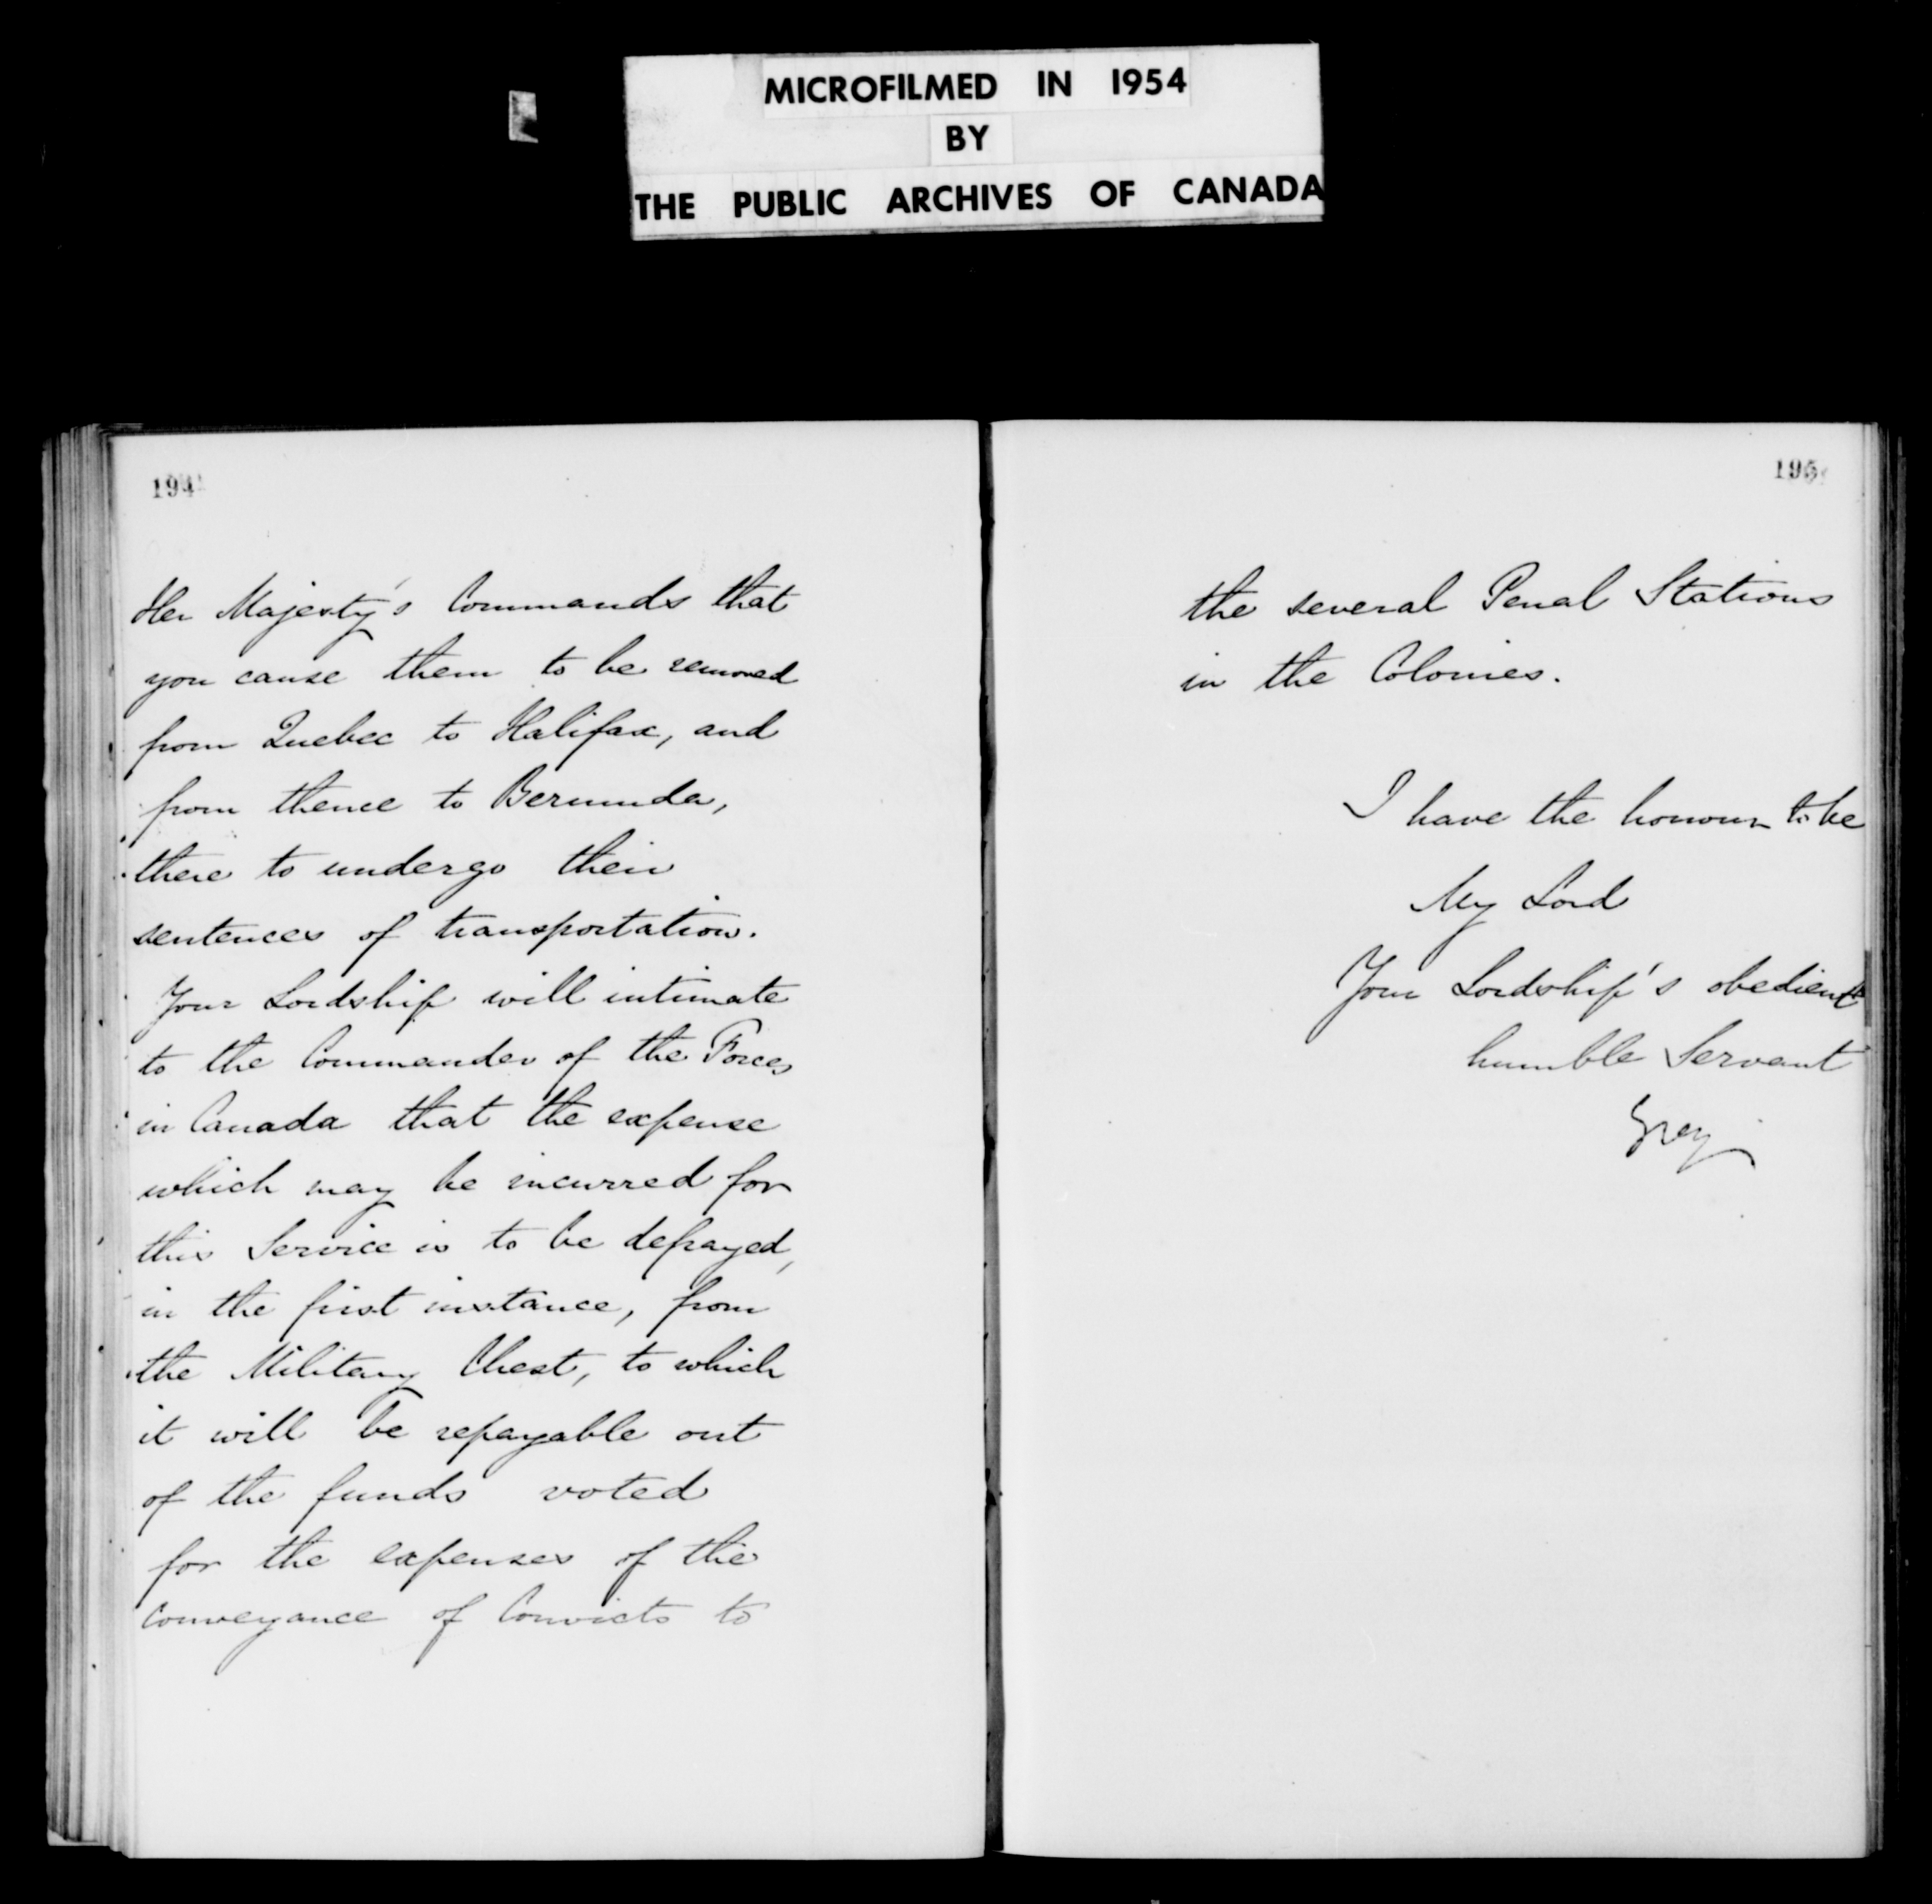 MICROFILMED IN 1954
BY
THE PUBLIC ARCHIVES OF CANADA
194
Her Majesty's Commands that
you cause them to be removed
from Quebec to Halifax, and
from thence to Bermuda,
there to undergo their
sentences of transportation.
Your Lordship will intimate
to the Commander of the Forces
in Canada that the expense
which may be incurred for
this Service is to be defrayed,
in the first instance, from
the Military Chest, to which
it will be repayable out
of the funds voted
for the expenses of the
conveyance of Convicts to
195
the several Penal Stations
in the Colonies.
I have the honour to be
My Lord
Your Lordship's obedient
humble Servant
Grey